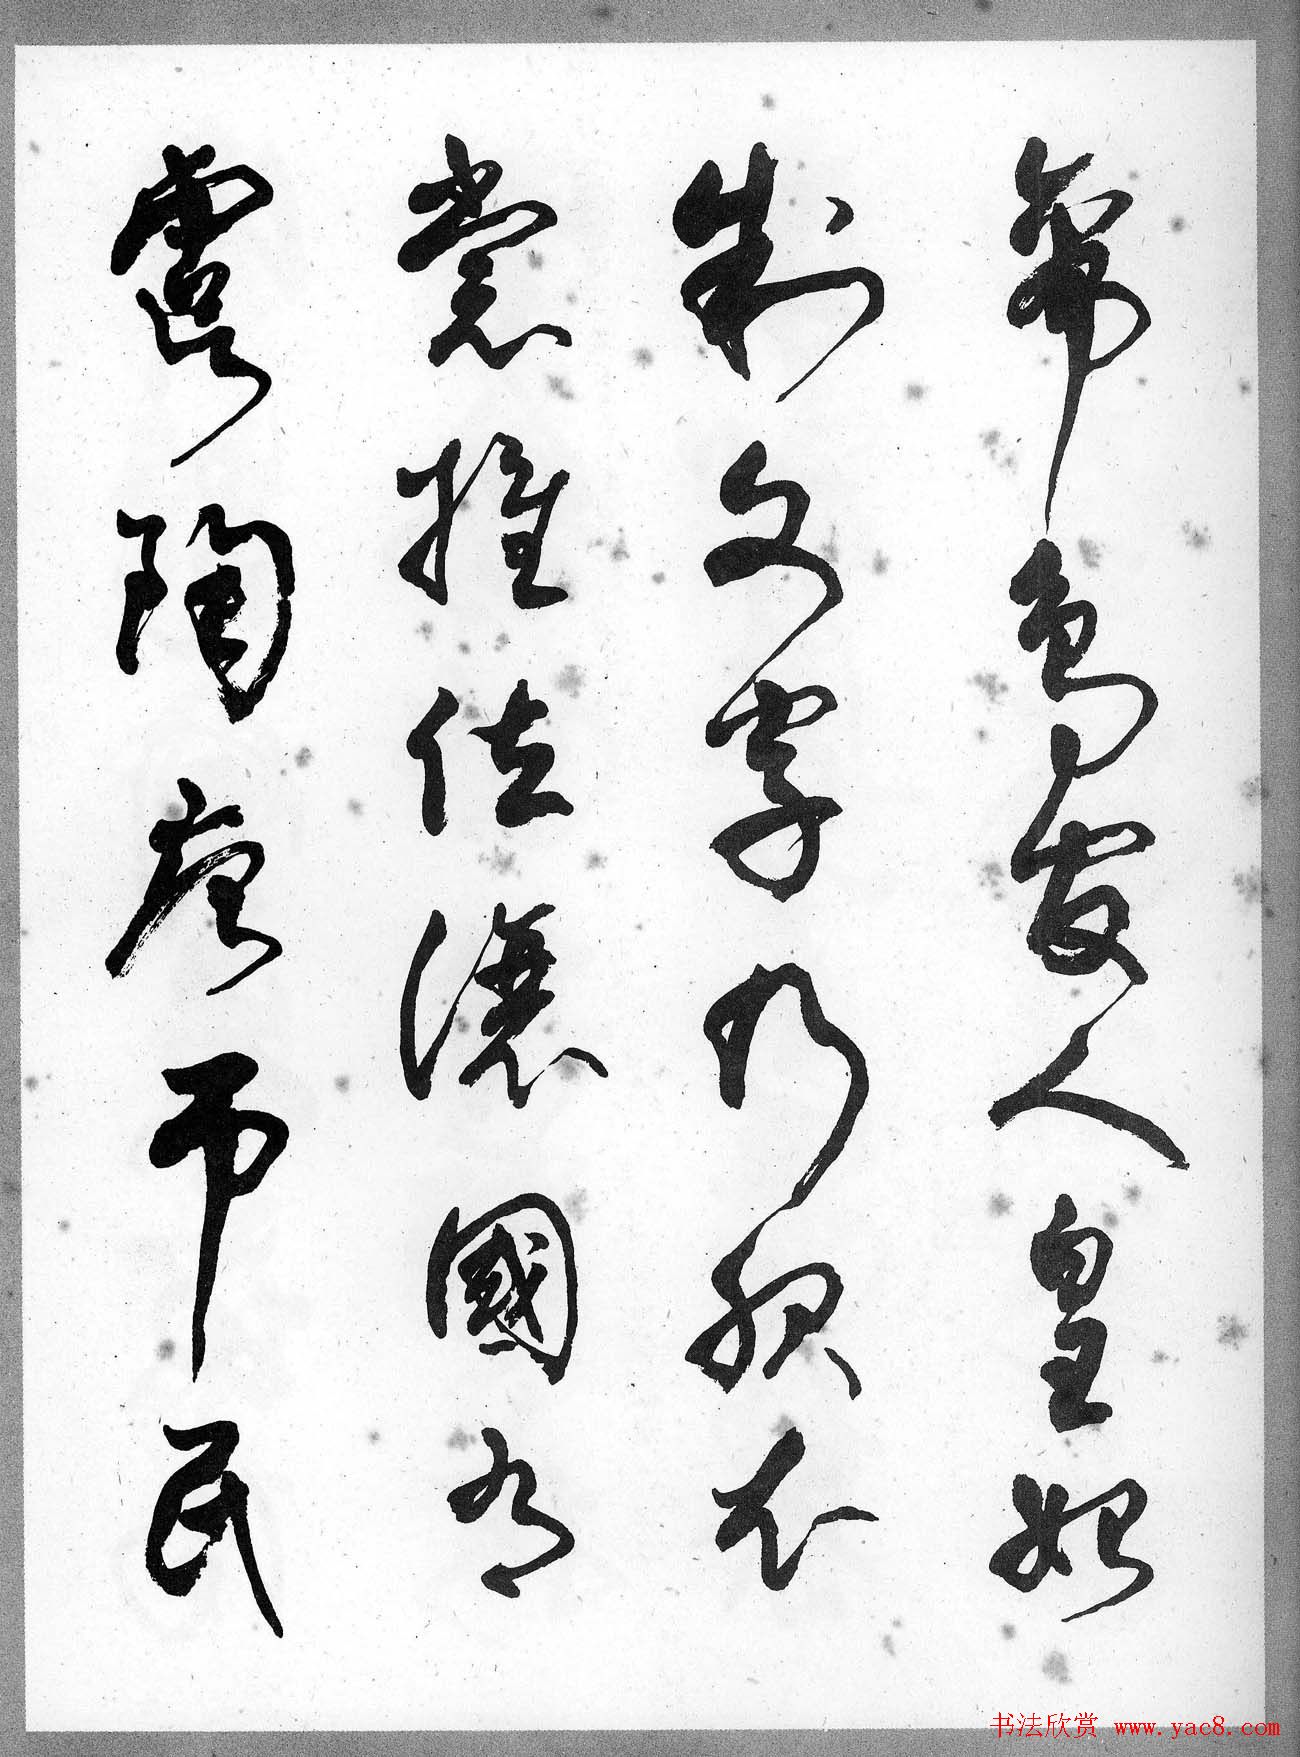 帝鳥官人皇始
制文字乃服衣
裳推位讓國有
虞陶唐弔民
书法欣赏 www.yac8.com